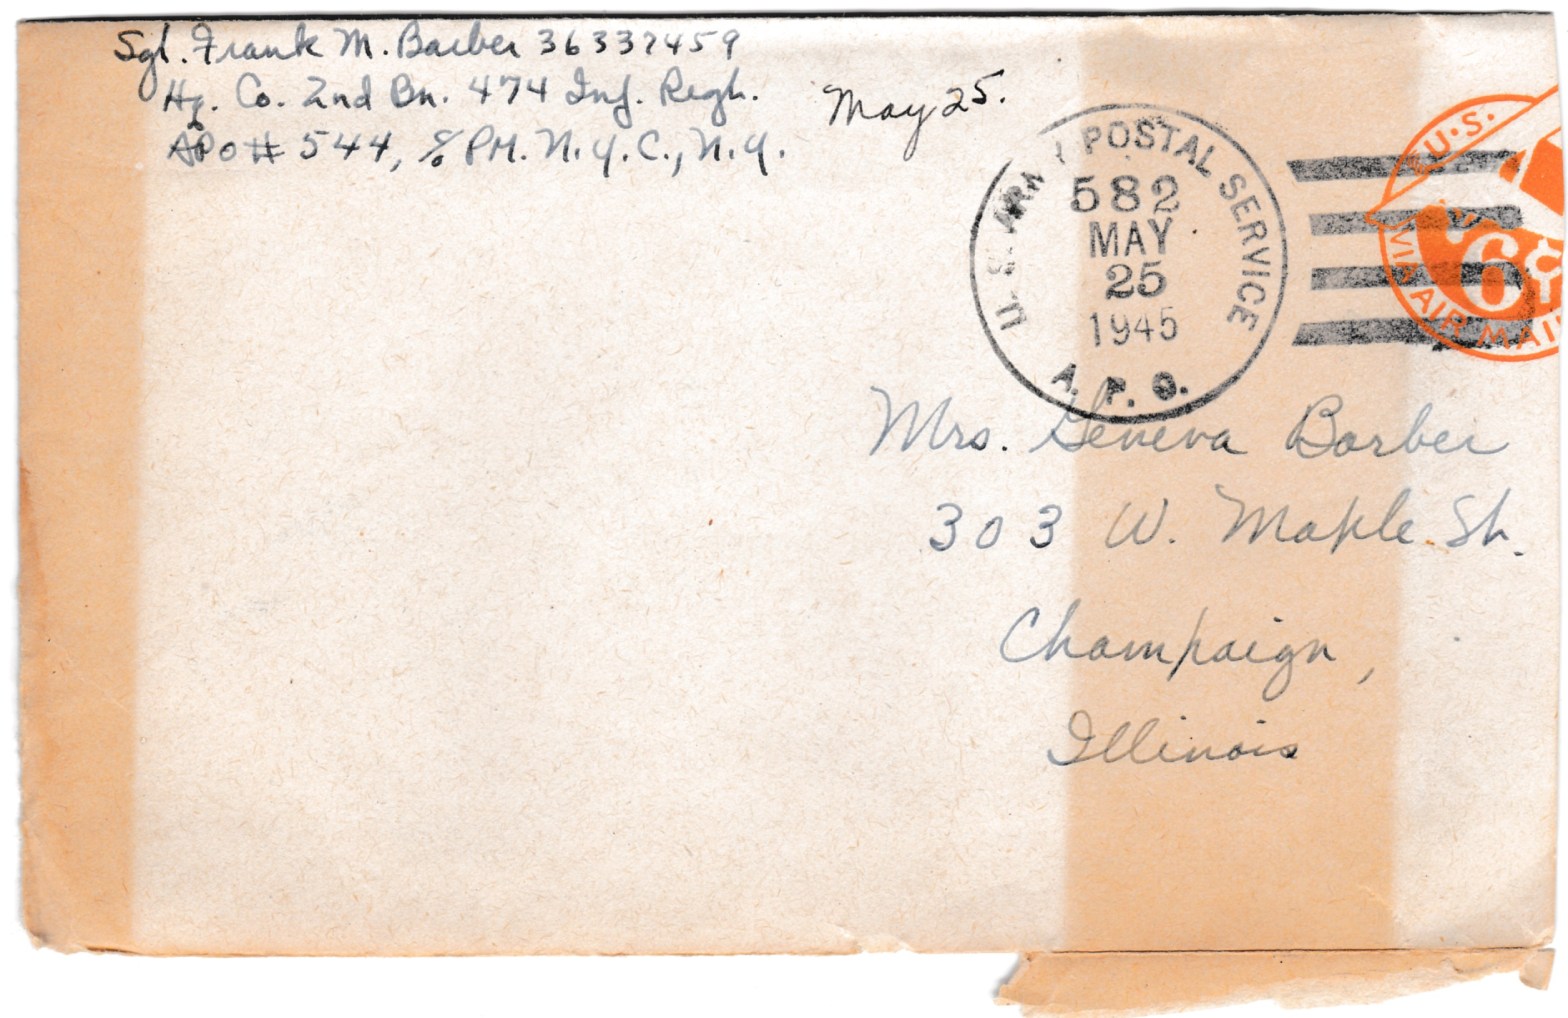 Sgt. Frank M. Barber 36337459
Hq. Co. 2nd Bn. 474 Inf. Regt.
APO # 544, % PM. N.Y.C., N.Y.
May 25.
U.S. ARMY POSTAL SERVICE
582
MAY
25
1945
A. P. O.
U.S.
6¢
VIA AIR MAIL
Mrs. Geneva Barber
303 W. Maple St.
Champaign,
Illinois